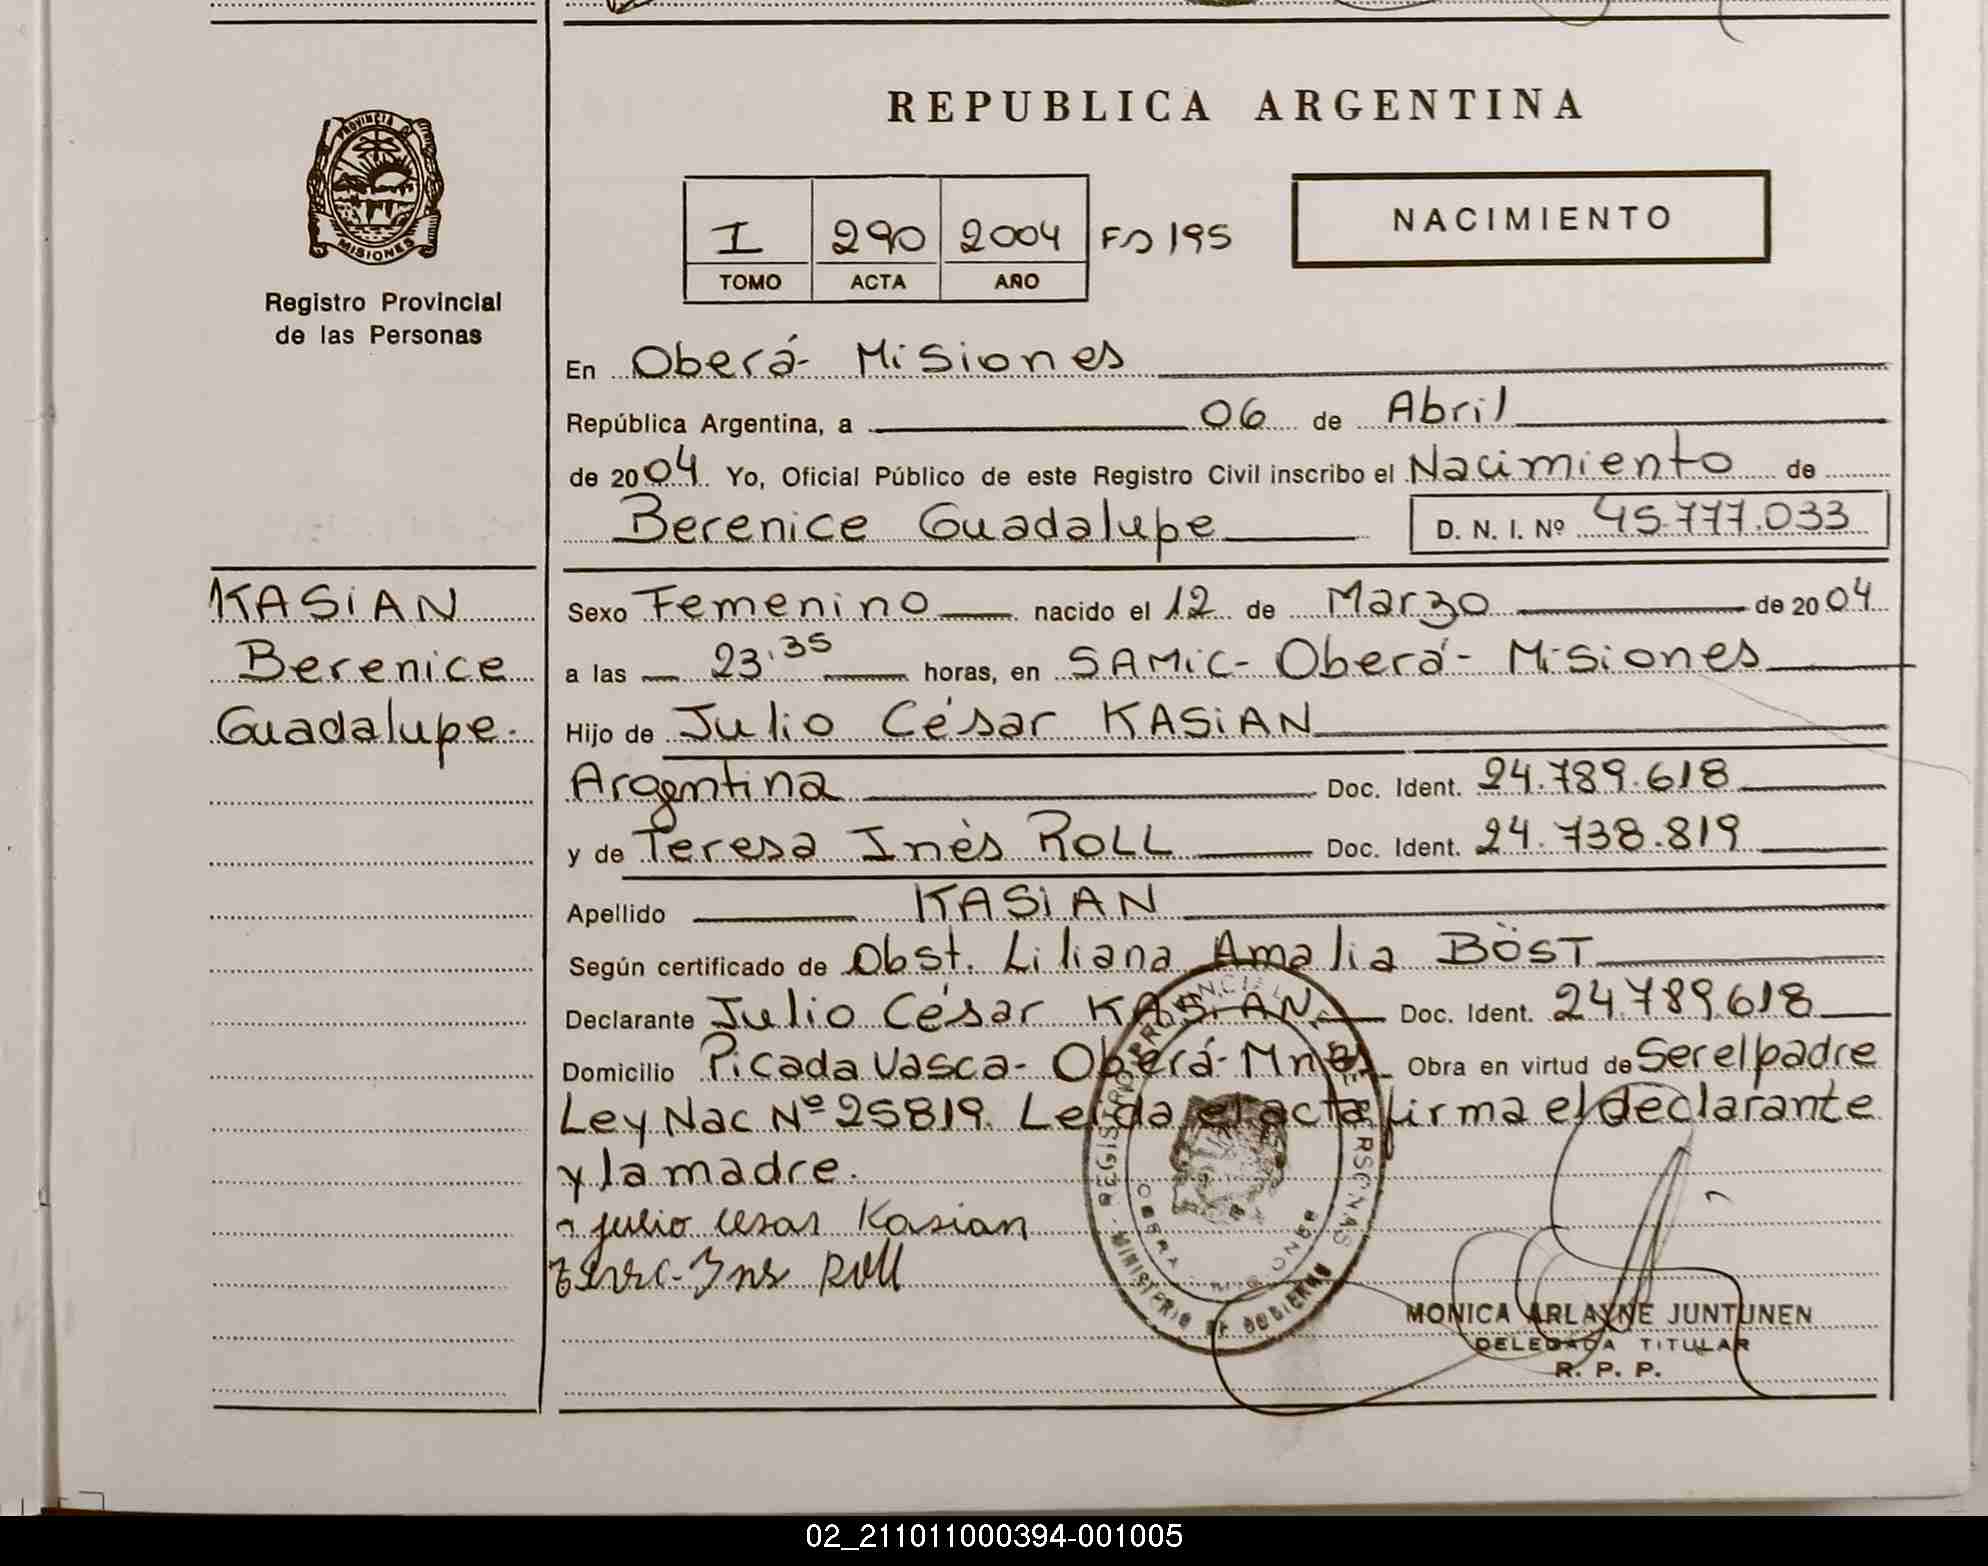 REPUBLICA ARGENTINA
PROVINCIA DE
MISIONES
Registro Provincial
de las Personas
I 290 2004 Fº 195
TOMO ACTA AÑO
NACIMIENTO
En Oberá- Misiones
República Argentina, a 06 de Abril
de 2004 Yo, Oficial Público de este Registro Civil inscribo el Nacimiento de
Berenice Guadalupe D. N. I. Nº 45.777.033
KASiAN
Berenice
Guadalupe.
Sexo Femenino nacido el 12 de Marzo de 2004
a las 23:35 horas, en SAMiC- Oberá- Misiones
Hijo de Julio César KASiAN
Argentina Doc. Ident. 24.789.618
y de Teresa Inès ROLL Doc. Ident. 24.738.819
Apellido KASiAN
Según certificado de Obst. Liliana Amalia BÖST
Declarante Julio César KASiAN Doc. Ident. 24.789.618
Domicilio Picada Vasca- Oberá- Mnes Obra en virtud de Ser el padre
Ley Nac Nº 25819. Leida el acta firma el declarante
y la madre.
julio cesar Kasian
Roll
REGISTRO PROVINCIAL DE LAS PERSONAS
MINISTERIO DE GOBIERNO
OBERA MISIONES
MONICA ARLAYNE JUNTUNEN
DELEGADA TITULAR
R. P. P.
02_211011000394-001005